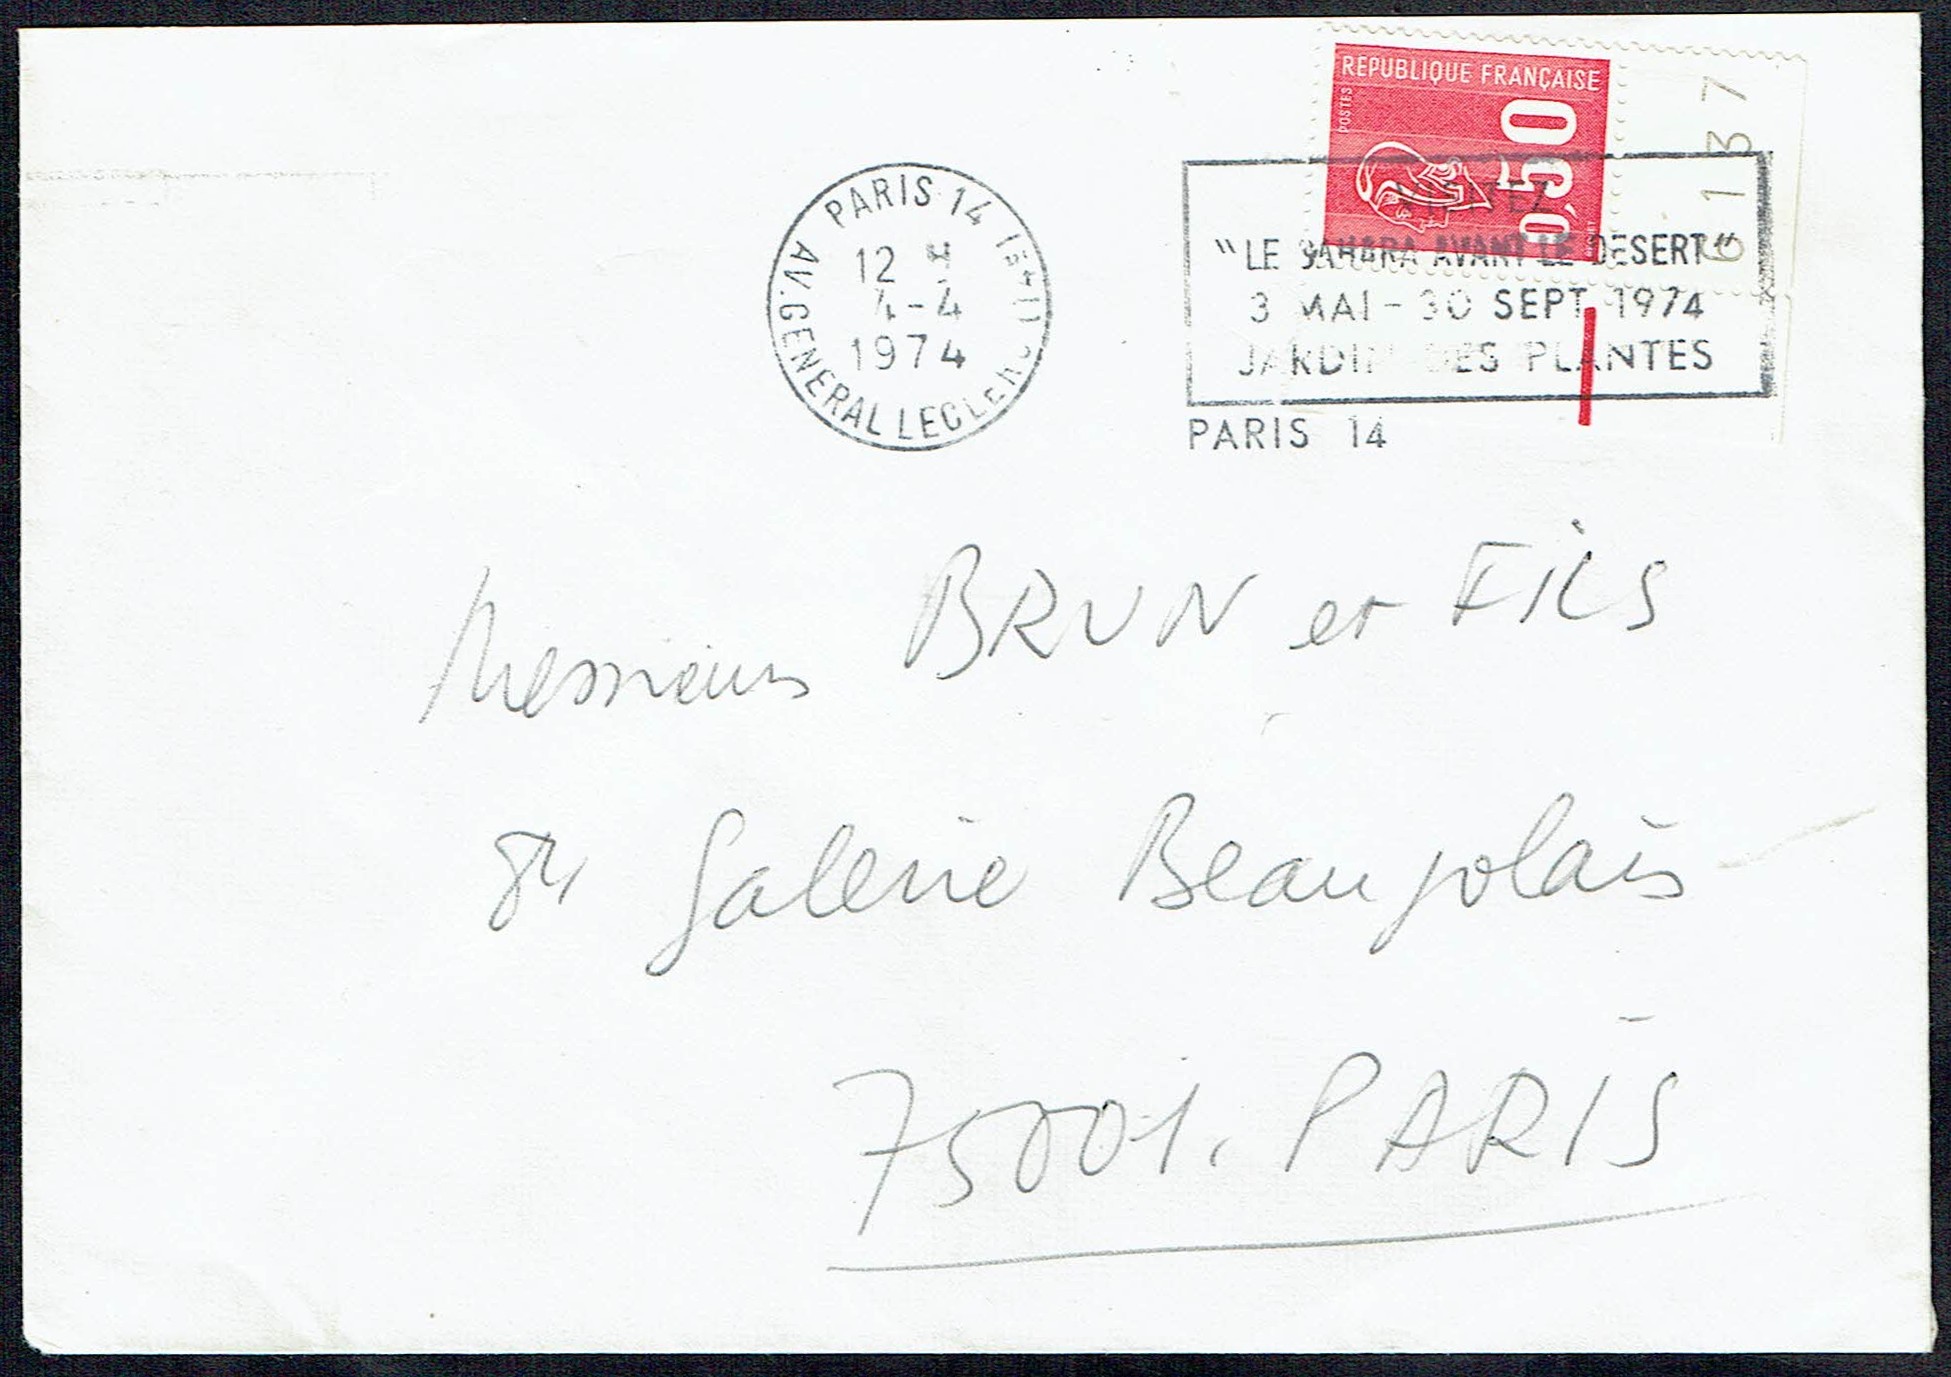 RÉPUBLIQUE FRANÇAISE
POSTES
0,50
6137
PARIS 14
AV. GENERAL LECLERC
12 H
4-4
1974
VISITEZ
"LE SAHARA AVANT LE DESERT"
3 MAI - 30 SEPT 1974
JARDIN DES PLANTES
PARIS 14
Messieurs BRUN et FILS
84 Galerie Beaujolais
75001. PARIS